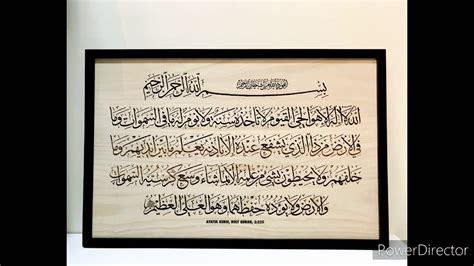 اعوذ بالله من الشيطان الرجيم
بسم الله الرحمن الرحيم
الله لا اله الا هو الحي القيوم لا تأخذه سنة ولا نوم له ما في السموات وما
في الارض من ذا الذي يشفع عنده الا باذنه يعلم ما بين ايديهم وما
خلفهم ولا يحيطون بشيء من علمه الا بما شاء وسع كرسيه السموات
والارض ولا يؤده حفظهما وهو العلي العظيم
AYATUL KURSI, HOLY QURAN, 2:225
PowerDirector